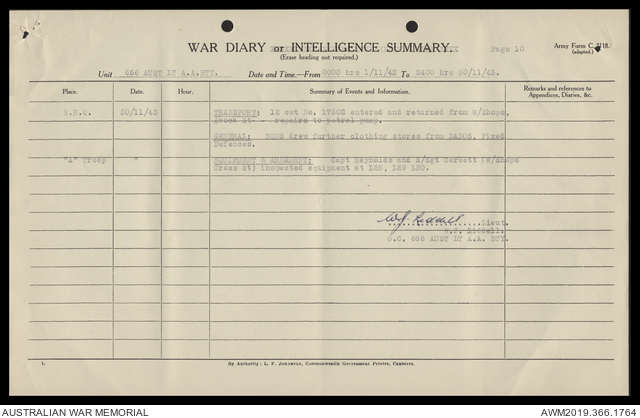 WAR DIARY or INTELLIGENCE SUMMARY. Page 10 Army Form C. 2118.
(Erase heading not required.) (adapted.)
Unit 656 AUST LT A.A.BTY. Date and Time.—From 0000 hrs 1/11/43 To 2400 hrs 30/11/43.
Place. Date. Hour. Summary of Events and Information. Remarks and references to
Appendices, Diaries, &c.
B.H.Q. 30/11/43 TRANSPORT: 12 cwt No. 17502 entered and returned from W/Shops,
- repairs to petrol pump.
GENERAL: drew further clothing stores from DADOS, Fixed
Defences.
"A" Troop " EQUIPMENT & ARMAMENT: Capt Reynolds and S/Sgt Corbett (W/Shops
Cross St) inspected equipment at L28, L29 L30.
W.J. Liddell Lieut.
W.J. Liddell.
O.C. 656 AUST LT A.A. BTY.
1. By Authority: L. F. Johnston, Commonwealth Government Printer, Canberra.
AUSTRALIAN WAR MEMORIAL AWM2019.366.1764